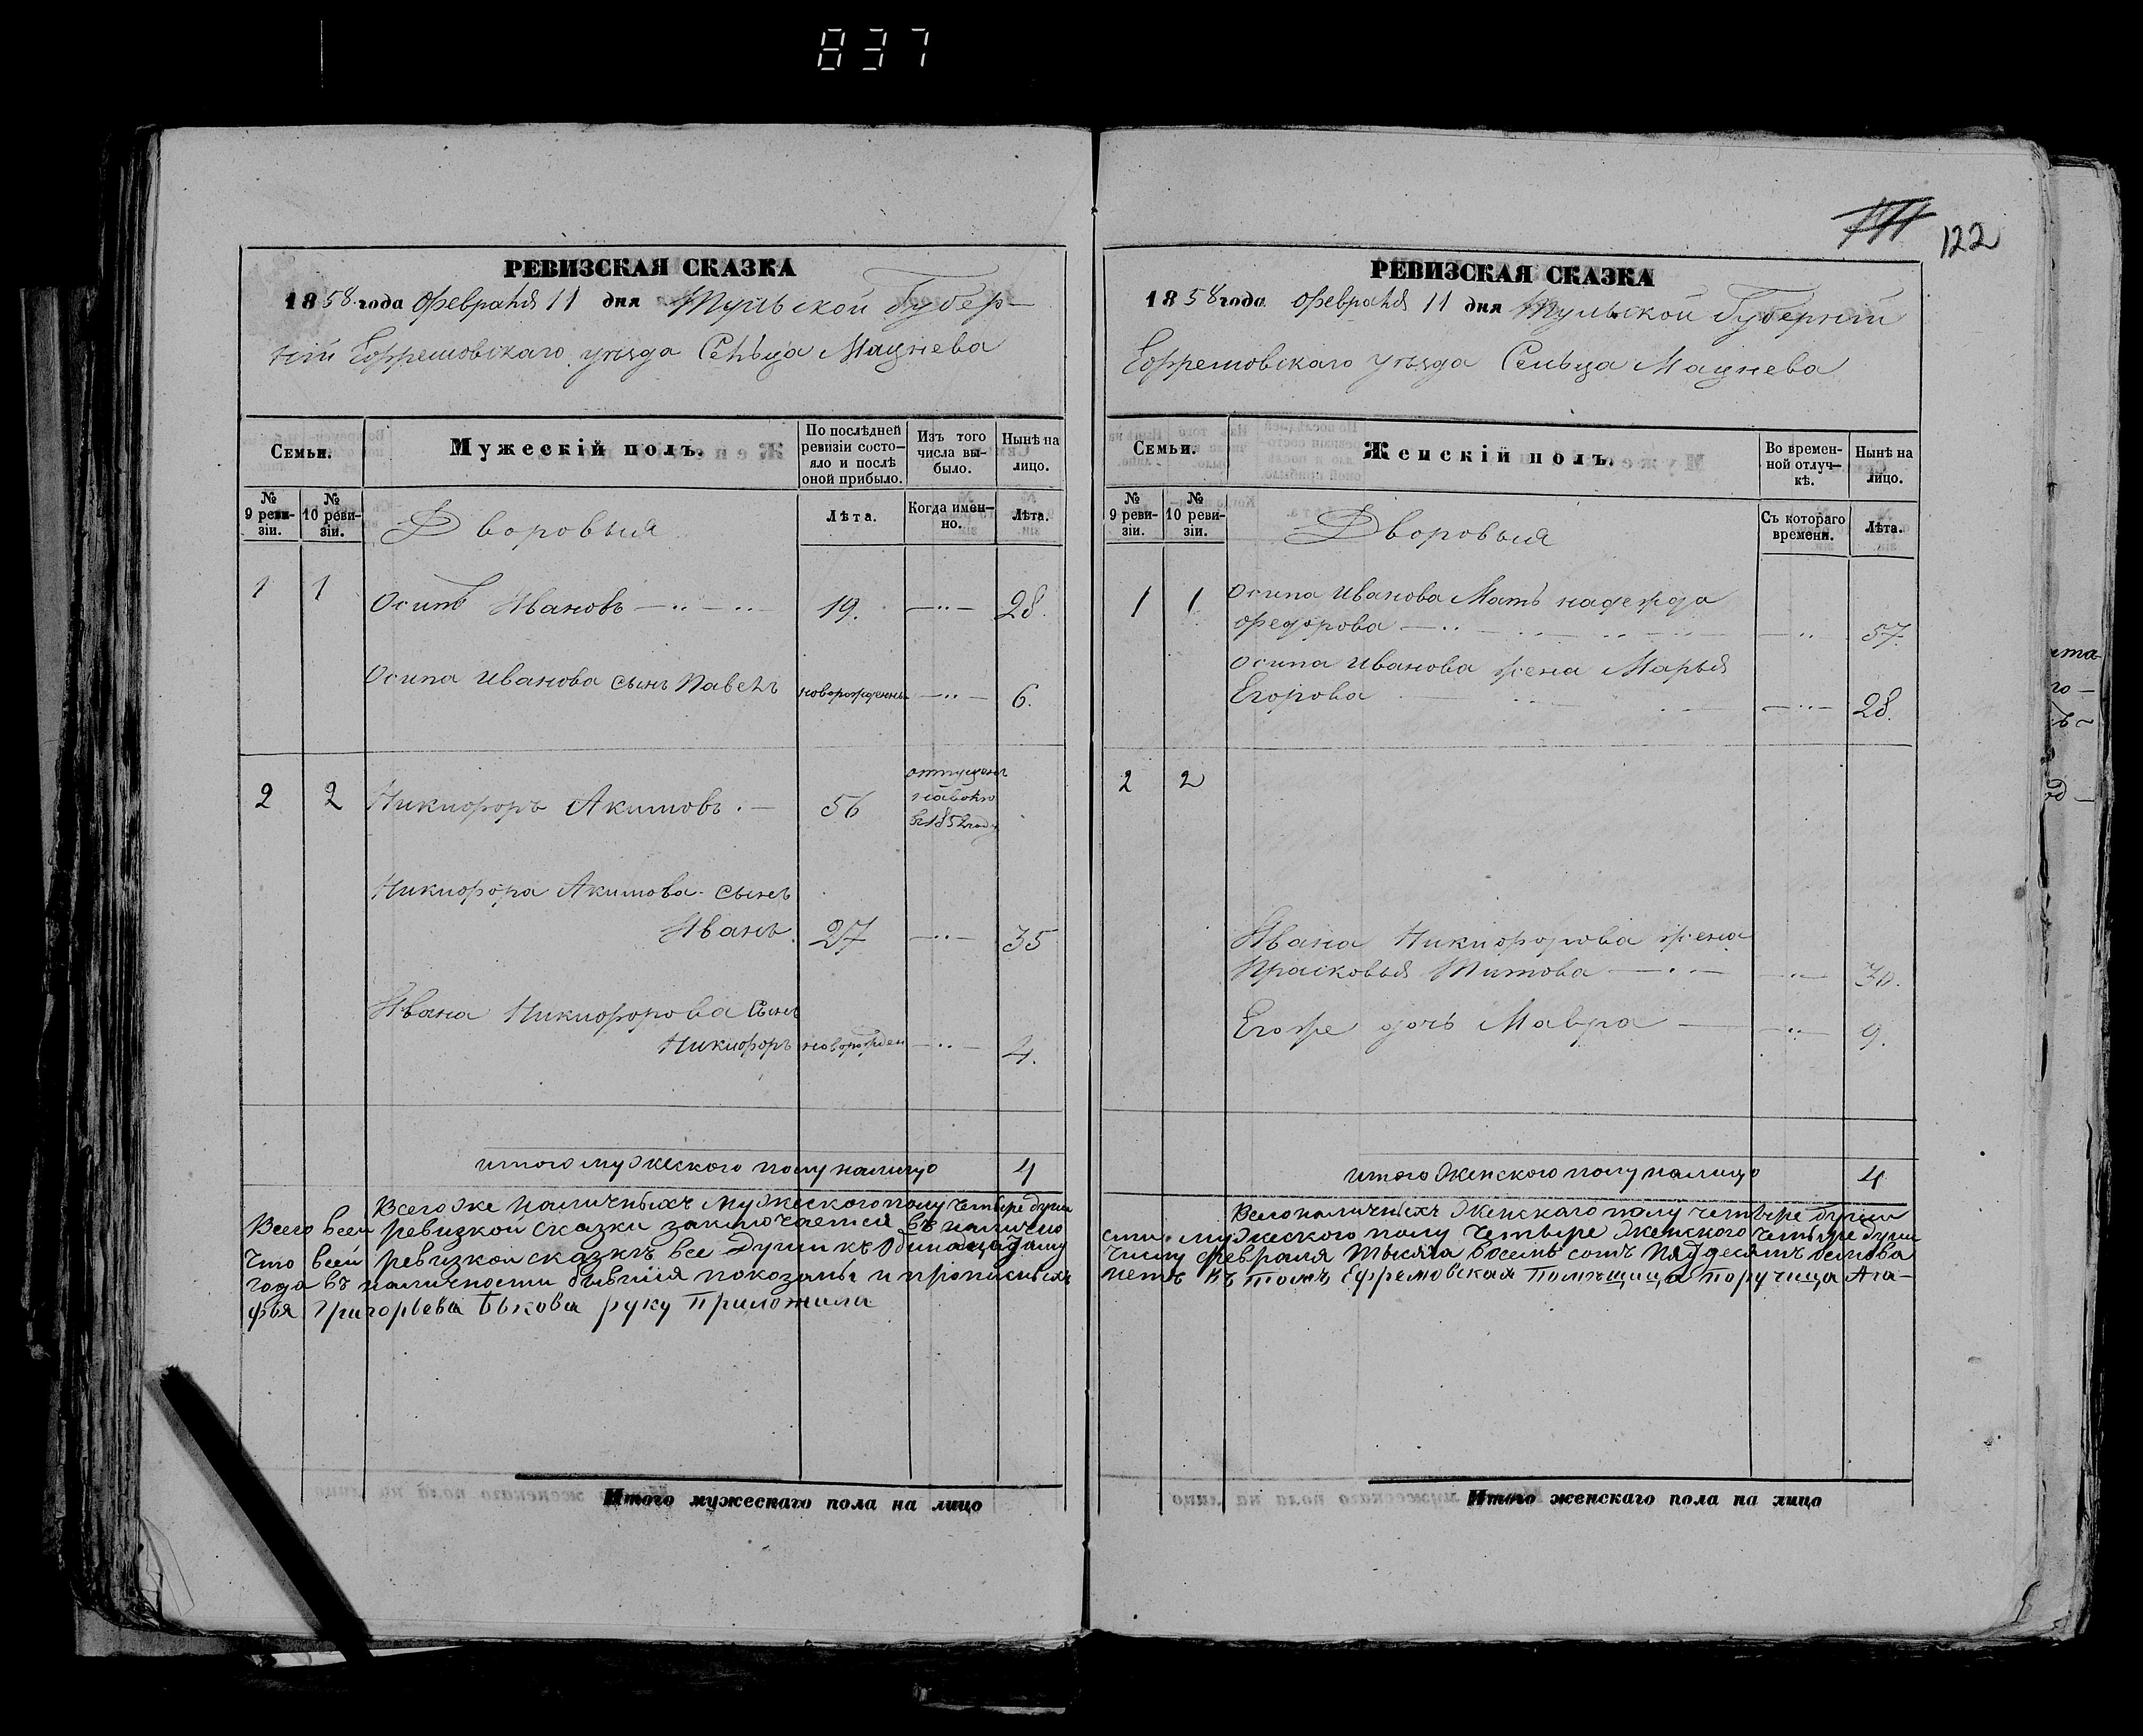 837
122
РЕВИЗСКАЯ СКАЗКА
1858 года Февраля 11 дня Тульской Губер-
ніи Ефремовскаго уѣзда Сельца Мацнева
Семьи.
Мужескій полъ.
По послѣдней ревизіи состо-яло и послѣ оной прибыло.
Изъ того числа вы-было.
Нынѣ на лицо.
№ 9 реви-зіи.
№ 10 реви-зіи.
Дворовыя
Лѣта.
Когда имен-но.
Лѣта.
1 1 Осипъ Ивановъ 19. 28.
Осипа Иванова сынъ Павелъ новорожденный 6.
2 2 Никифоръ Акимовъ 56
отпущенъ
на волю
въ 1852 году
Никифора Акимова сынъ
Иванъ 27 35
Ивана Никифорова Сынъ
Никифоръ новорожден 4.
итого мужеского полу налицо 4
Всего же Наличныхъ Мужеского полу четыре души
Всего всей ревизкой сказки заключается въ налично
что всей ревизкой сказкѣ все души къ Одинадцатому
года въ наличности бывшія показаны и прописныхъ
фья Григорьева Быкова руку Приложила
Итого мужескаго пола на лицо
РЕВИЗСКАЯ СКАЗКА
1858 года Февраля 11 дня Тульской Губерніи
Ефремовскаго уѣзда Сельца Мацнева
Семьи.
Женскій полъ.
Во времен-ной отлуч-кѣ.
Нынѣ на лицо.
№ 9 реви-зіи.
№ 10 реви-зіи.
Дворовыя
Съ котораго времени.
Лѣта.
1 1 Осипа Иванова Мать надежда
Федорова 57.
Осипа Иванова жена Марья
Егорова 28.
2 2
Ивана Никифорова жена
Прасковья Титова 30.
Его же дочь Мавра 9.
итого Женского полу налицо 4
Всего наличныхъ Женскаго полу четыре души
сти мужеского полу Четыре Женского Четыре души
числу февраля Тысяча восемь сотъ Пядьдесятъ осмова
нетъ Къ томъ Ефремовская Помѣщица поручица Ага-
Итого женскаго пола на лицо